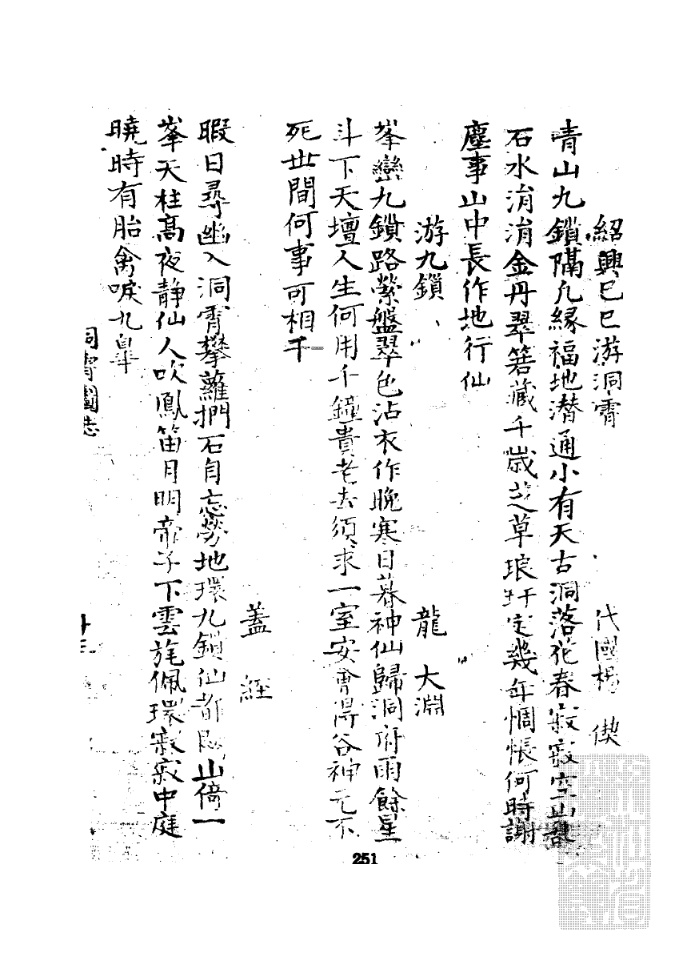 紹興己巳游洞霄
代國楊 偰
青山九鎖隔凡緣福地潛通小有天古洞落花春寂寂空山暴
石水涓涓金丹翠箬藏千歲芝草琅玕定幾年惆悵何時謝
塵事山中長作地行仙
游九鎖
龍 大淵
峯巒九鎖路縈盤翠色沾衣作晚寒日暮神仙歸洞府雨餘星
斗下天壇人生何用千鐘貴老去須求一室安會得谷神元不
死世間何事可相干
蓋 經
暇日尋幽入洞霄攀蘿捫石自忘勞地環九鎖仙都 山倚一
峯天柱高夜静仙人吹鳳笛月明帝子下雲旄佩環寂寂中庭
曉時有胎禽唳九臯
洞霄圖志
251